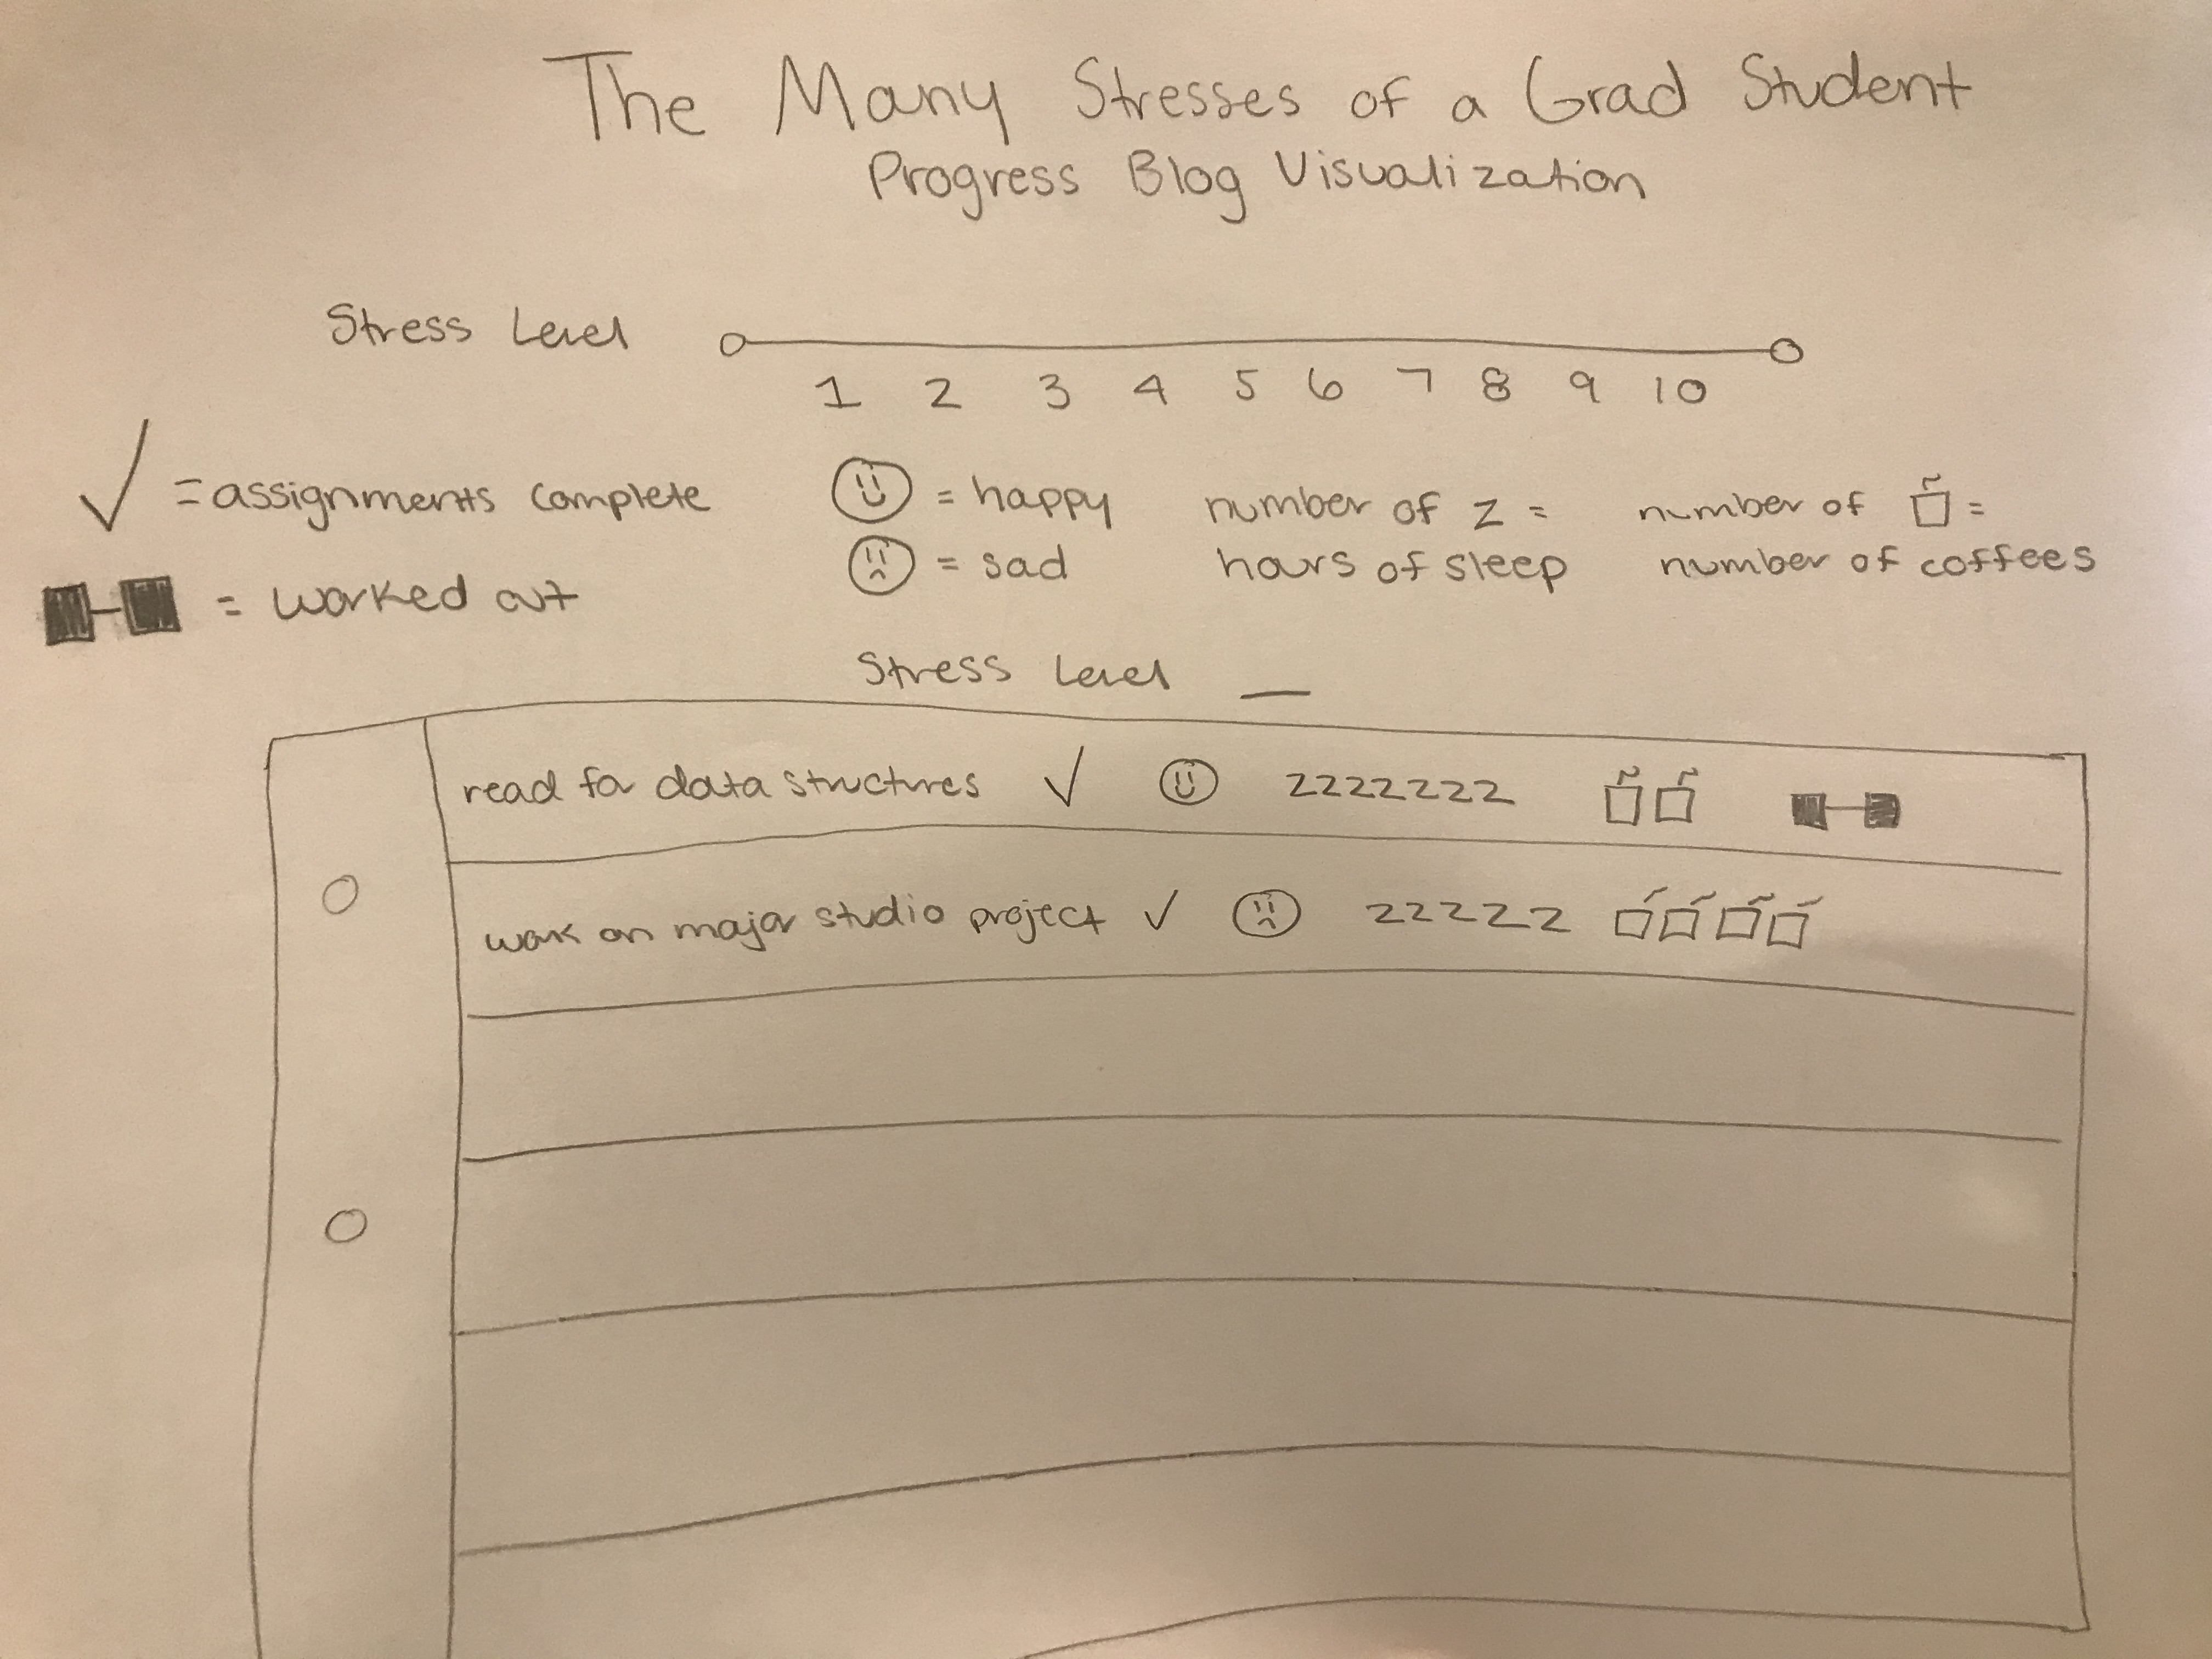 The Many Stresses of a Grad Student
Progress Blog Visualization
Stress Level
1 2 3 4 5 6 7 8 9 10
✓ = assignments complete
= worked out
= happy
= sad
number of z =
hours of sleep
number of =
number of coffees
Stress Level __
read for data structures ✓ zzzzzzz
work on major studio project ✓ zzzzz